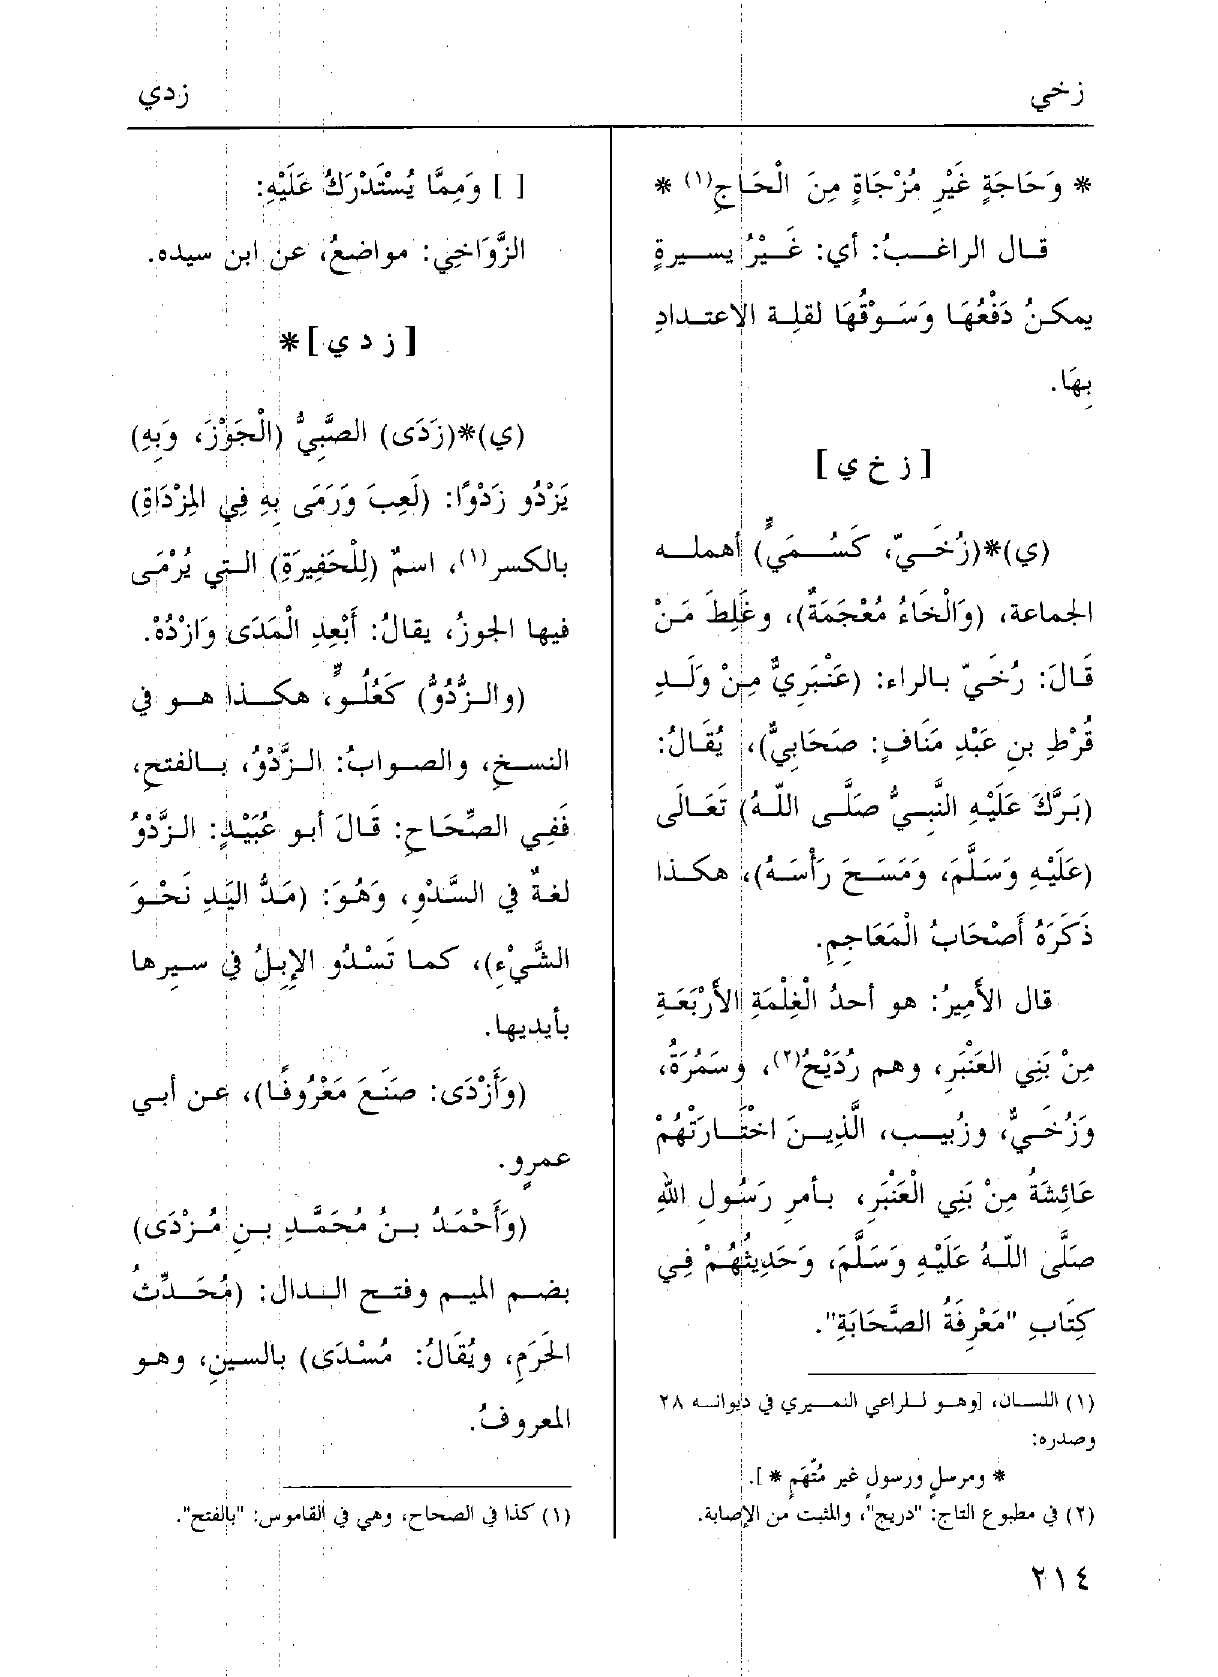 زخي
زدي
* وَحَاجَةٍ غَيْرِ مُزْجَاةٍ مِنَ الْحَاجِ(١) *
قال الراغبُ: أي: غَيْرُ يسيرةٍ
يمكنُ دَفْعُهَا وَسَوْقُهَا لقلةِ الاعتدادِ
بِهَا.
[ ز خ ي ]
(ي)*(زُخَيّ، كَسُمَيٍّ) أهمله
الجماعة، (وَالْخَاءُ مُعْجَمَةٌ)، وغَلِطَ مَنْ
قَالَ: رُخَيّ بالراء: (عَنْبَرِيٌّ مِنْ وَلَدِ
قُرْطِ بنِ عَبْدِ مَنَافٍ: صَحَابِيٌّ)، يُقَالُ:
(بَرَّكَ عَلَيْهِ النَّبِيُّ صَلَّى اللّهُ) تَعَالَى
(عَلَيْهِ وَسَلَّمَ، وَمَسَحَ رَأْسَهُ)، هكذا
ذَكَرَهُ أَصْحَابُ الْمَعَاجِمِ.
قال الأَمِيرُ: هو أحدُ الْغِلْمَةِ الأَرْبَعَةِ
مِنْ بَنِي العَنْبَرِ، وهم رُدَيْحُ(٢)، وسَمُرَةُ،
وَزُخَيٌّ، وزُبيب، الَّذِينَ اخْتَارَتْهُمْ
عَائِشَةُ مِنْ بَنِي الْعَنْبَرِ، بأمرِ رَسُولِ اللهِ
صَلَّى اللّهُ عَلَيْهِ وَسَلَّمَ، وَحَدِيثُهُمْ فِي
كِتَابِ "مَعْرِفَةُ الصَّحَابَةِ".
(١) اللسان، [وهو للراعي النميري في ديوانه ٢٨
وصدره:
* ومرسلٍ ورسولٍ غير مُتَّهَمٍ * ].
(٢) في مطبوع التاج: "دريج"، والمثبت من الإصابة.
[ ] وَمِمَّا يُسْتَدْرَكُ عَلَيْهِ:
الزَّوَاخِي: مواضعُ، عن ابن سيده.
[ ز د ي ]*
(ي)*(زَدَى) الصَّبِيُّ (الْجَوْزَ، وَبِهِ)
يَزْدُو زَدْوًا: (لَعِبَ وَرَمَى بِهِ فِي المِزْدَاةِ)
بالكسر(١)، اسمٌ (لِلْحَفِيرَةِ) التي يُرْمَى
فيها الجوزُ، يقالُ: أَبْعِدِ الْمَدَى وَازْدُهْ.
(والزُّدُوُّ) كَعُلُوٍّ، هكذا هو في
النسخِ، والصوابُ: الزَّدْوُ، بالفتحِ،
فَفِي الصِّحَاحِ: قَالَ أبو عُبَيْدٍ: الزَّدْوُ
لغةٌ في السَّدْوِ، وَهُوَ: (مَدُّ اليَدِ نَحْوَ
الشَّيْءِ)، كما تَسْدُو الإِبِلُ في سيرِها
بأيديها.
(وَأَزْدَى: صَنَعَ مَعْرُوفًا)، عن أبي
عمرٍو.
(وَأَحْمَدُ بنُ مُحَمَّدِ بنِ مُزْدَى)
بضم الميم وفتح الدال: (مُحَدِّثُ
الحَرَمِ، ويُقَالُ: مُسْدَى) بالسينِ، وهو
المعروفُ.
(١) كذا في الصحاح، وهي في القاموس: "بالفتح".
٢١٤